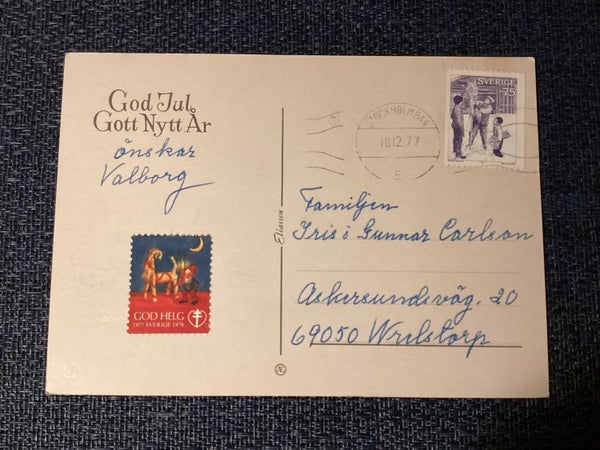 God Jul
Gott Nytt År
önskar
Valborg
SVERIGE
75
STOCKHOLM BAN
18.12.77
c
Familjen
Iris i Gunnar Carlson
Askersundsväg. 20
69050 Wrelstorp
Eliasson
GOD HELG
1977 SVERIGE 1978